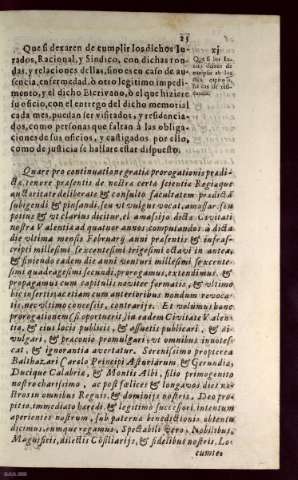 25
Que si dexaren de cumplir los dichos Iu-
rados, Racional, y Sindico, con dichas ron-
das, y relaciones dellas, sino es en caso de au-
sencia, enfermedad, ò otro legitimo impedi-
mento, y el dicho Escrivano, ò el que hiziere
su oficio, con el entrego del dicho memorial
cada mes, puedan ser visitados, y residencia-
dos, como personas que faltan à las obliga-
ciones de sus oficios, y castigados por ello,
como de justicia se hallare estar dispuesto.
xj
Que si los Iu-
rados dexaren de
cumplir
Quare pro continuatione gratia prorogationis prædi-
cta, tenore præsentis de nostra certa scientia Regiaque
auctoritate deliberate & consulto facultatem prædictã
subigendi & pinsandi, seu vt vulgus vocat, amassar: seu
potius & vt clarius dicitur, el amasijo dicta Civitati
nostræ Valentia ad quatuor annos computandos à dicta
die vltima mensis Februarij anni præsentis & infras-
cripti millesimi sexcentesimi trigesimi octavi in antea,
& finiendo eadem die anni venturi millesimi sexcente-
simi quadragesimi secundi, prorogamus, extendimus, &
propagamus cum capitulis noviter formatis, & vltimo
hic insertis; & etiam cum anterioribus nondum revoca-
tis, nec vltimo concessis, contrarijs. Et volumus hanc
prorogationem (si oportuerit,) in eadem Civitate Valen-
tia, & eius locis publicis, & assuetis publicari, & di-
vulgari, & præconio promulgari, vt omnibus innotes-
cat, & ignorantia avertatur. Serenissimo propterea
Balthazari Carolo Principi Asturiarum, & Gerundæ,
Ducique Calabriæ, & Montis Albi, filio primogenito
nostro charissimo, ac post felices & longævos dies nos-
tros in omnibus Regnis, & dominijs nostris, Deo pro-
pitio, immediato hæredi, & legitimo successori, intentum
aperientes nostrum, sub paterna benedictionis obtentu
dicimus, eumque rogamus, Spectabili vero, Nobilibus,
Magnificis, dilectis Cõsiliarijs, & fidelibus nostris, Lo-
cumte-